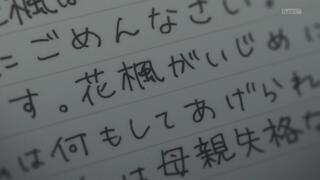 楓は
にごめんなさい。
す。花楓がいじめに
は何もしてあげられ
は母親失格な